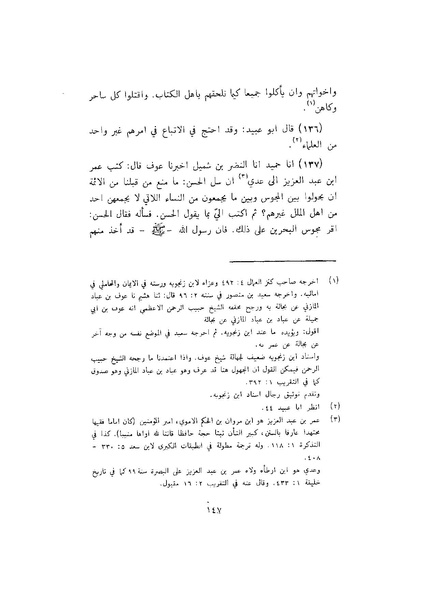 واخواتهم وان يأكلوا جميعا كيما نلحقهم باهل الكتاب. واقتلوا كل ساحر
وكاهن(١).
(١٣٦) قال ابو عبيد: وقد احتج في الاتباع في امرهم غير واحد
من العلماء(٢).
(١٣٧) انا حميد انا النضر بن شميل اخبرنا عوف قال: كتب عمر
ابن عبد العزيز الى عدي(٣) ان سل الحسن: ما منع من قبلنا من الائمة
ان يحولوا بين المجوس وبين ما يجمعون من النساء اللاتي لا يجمعهن احد
من اهل الملل غيرهم؟ ثم اكتب اليّ بما يقول الحسن. فسأله فقال الحسن:
اقر مجوس البحرين على ذلك. فان رسول الله - ﷺ - قد أخذ منهم
(١) اخرجه صاحب كنز العمال ٤: ٤٩٢ وعزاه لابن زنجويه ورسته في الايمان والمحاملي في
اماليه. واخرجه سعيد بن منصور في سننه ٢: ٩٦ قال: ثنا هشيم نا عوف بن عباد
المازني عن بجالة به ورجح محققه الشيخ حبيب الرحمن الاعظمي انه عوف بن ابي
جميلة عن عباد بن عباد المازني عن بجالة
اقول: ويؤيده ما عند ابن زنجويه. ثم اخرجه سعيد في الموضع نفسه من وجه آخر
عن بجالة عن عمر به.
واسناد ابن زنجويه ضعيف لجهالة شيخ عوف. واذا اعتمدنا ما رجحه الشيخ حبيب
الرحمن فيمكن القول ان المجهول هنا قد عرف وهو عباد بن عباد المازني وهو صدوق
كما في التقريب ١: ٣٩٢.
وتقدم توثيق رجال اسناد ابن زنجويه.
(٢) انظر ابا عبيد ٤٤.
(٣) عمر بن عبد العزيز هو ابن مروان بن الحكم الاموي، امير المؤمنين (كان اماما فقيها
مجتهدا عارفا بالسنن، كبير الشأن ثبتا حجة حافظا قانتا لله اواها منيبا). كذا في
التذكرة ١: ١١٨. وله ترجمة مطولة في الطبقات الكبرى لابن سعد ٥: ٣٣٠ -
٤٠٨.
وعدي هو ابن ارطأه ولاه عمر بن عبد العزيز على البصرة سنة ٩٩ كما في تاريخ
خليفة ١: ٤٣٣. وقال عنه في التقريب ٢: ١٦ مقبول.
١٤٧